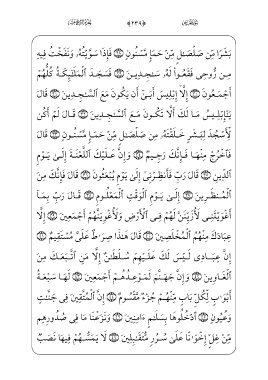 بَشَرًا مِّن صَلْصَٰلٍ مِّنْ حَمَإٍ مَّسْنُونٍ ۝ فَإِذَا سَوَّيْتُهُۥ وَنَفَخْتُ فِيهِ
مِن رُّوحِى فَقَعُوا۟ لَهُۥ سَٰجِدِينَ ۝ فَسَجَدَ ٱلْمَلَٰٓئِكَةُ كُلُّهُمْ
أَجْمَعُونَ ۝ إِلَّآ إِبْلِيسَ أَبَىٰٓ أَن يَكُونَ مَعَ ٱلسَّٰجِدِينَ ۝ قَالَ
يَٰٓإِبْلِيسُ مَا لَكَ أَلَّا تَكُونَ مَعَ ٱلسَّٰجِدِينَ ۝ قَالَ لَمْ أَكُن
لِّأَسْجُدَ لِبَشَرٍ خَلَقْتَهُۥ مِن صَلْصَٰلٍ مِّنْ حَمَإٍ مَّسْنُونٍ ۝ قَالَ
فَٱخْرُجْ مِنْهَا فَإِنَّكَ رَجِيمٌ ۝ وَإِنَّ عَلَيْكَ ٱللَّعْنَةَ إِلَىٰ يَوْمِ
ٱلدِّينِ ۝ قَالَ رَبِّ فَأَنظِرْنِىٓ إِلَىٰ يَوْمِ يُبْعَثُونَ ۝ قَالَ فَإِنَّكَ مِنَ
ٱلْمُنظَرِينَ ۝ إِلَىٰ يَوْمِ ٱلْوَقْتِ ٱلْمَعْلُومِ ۝ قَالَ رَبِّ بِمَآ
أَغْوَيْتَنِى لَأُزَيِّنَنَّ لَهُمْ فِى ٱلْأَرْضِ وَلَأُغْوِيَنَّهُمْ أَجْمَعِينَ ۝ إِلَّا
عِبَادَكَ مِنْهُمُ ٱلْمُخْلَصِينَ ۝ قَالَ هَٰذَا صِرَٰطٌ عَلَىَّ مُسْتَقِيمٌ ۝
إِنَّ عِبَادِى لَيْسَ لَكَ عَلَيْهِمْ سُلْطَٰنٌ إِلَّا مَنِ ٱتَّبَعَكَ مِنَ
ٱلْغَاوِينَ ۝ وَإِنَّ جَهَنَّمَ لَمَوْعِدُهُمْ أَجْمَعِينَ ۝ لَهَا سَبْعَةُ
أَبْوَٰبٍ لِّكُلِّ بَابٍ مِّنْهُمْ جُزْءٌ مَّقْسُومٌ ۝ إِنَّ ٱلْمُتَّقِينَ فِى جَنَّٰتٍ
وَعُيُونٍ ۝ ٱدْخُلُوهَا بِسَلَٰمٍ ءَامِنِينَ ۝ وَنَزَعْنَا مَا فِى صُدُورِهِم
مِّنْ غِلٍّ إِخْوَٰنًا عَلَىٰ سُرُرٍ مُّتَقَٰبِلِينَ ۝ لَا يَمَسُّهُمْ فِيهَا نَصَبٌ